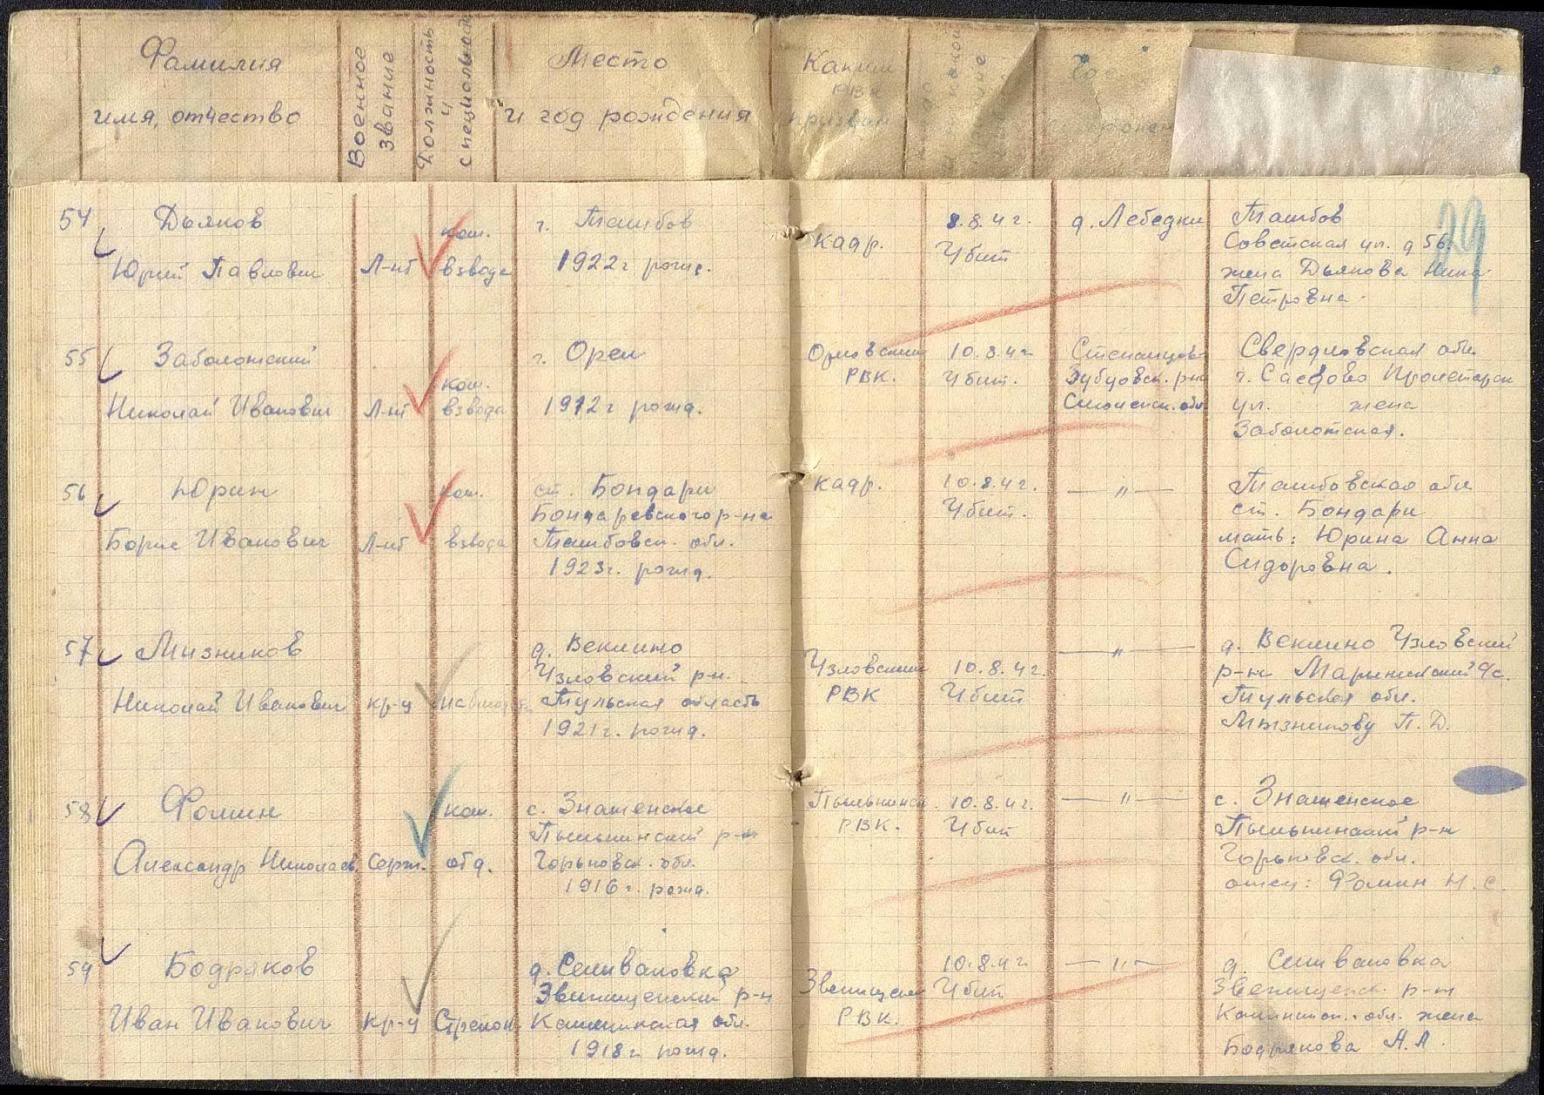 Фамилия
имя, отчество
Военное
звание
Должность
и
специальность
Место
и год рождения
Каким
РВК
призван
54
Дьяков
Юрий Павлович
Л-нт
ком.
взвода
г. Тамбов
1922 г. рожд.
кадр.
8.8.42г.
Убит
д. Лебедки
Тамбов
Советская ул. д 56.
жена Дьякова Нина
Петровна.
29
55
Заболотский
Николай Иванович
Л-нт
ком.
взвода
г. Орел
1912 г рожд.
Орловским
РВК.
10.8.42
Убит.
Зубцовск. р-на
Смоленск. обл
Свердловская обл.
г. Пролетарск
ул. жена
Заболотская.
56
Юрин
Борис Иванович
Л-нт
ком.
взвода
ст. Бондари
Бондаревского р-на
Тамбовск. обл.
1923г. рожд.
кадр.
10.8.42.
Убит.
— " —
Тамбовская обл
ст. Бондари
мать: Юрина Анна
Сидоровна.
57
Мызников
Николай Иванович
кр-ц
д. Веклино
Узловский р-н.
Тульская область
1921 г. рожд.
Узловским
РВК
10.8.42.
Убит
— " —
д. Веклино Узловский
р-н с/с.
Тульская обл.
Мызникову П. Д.
58
Фомин
Александр Николаев.
Серж.
ком.
отд.
с. Знаменское
Пильнинский р-н
Горьковск. обл.
1916 г. рожд.
Пильнинск.
РВК.
10.8.42.
Убит
— " —
с. Знаменское
Пильнинский р-н
Горьковск. обл.
отец: Фомин Н. С.
59
Бодряков
Иван Иванович
кр-ц
Стрелок
д. Селивановка
р-н
Калининская обл.
1918 г. рожд.
РВК.
10.8.42
Убит
— " —
д. Селивановка
р-н
Калининск. обл. жена
Бодрякова А.Л.